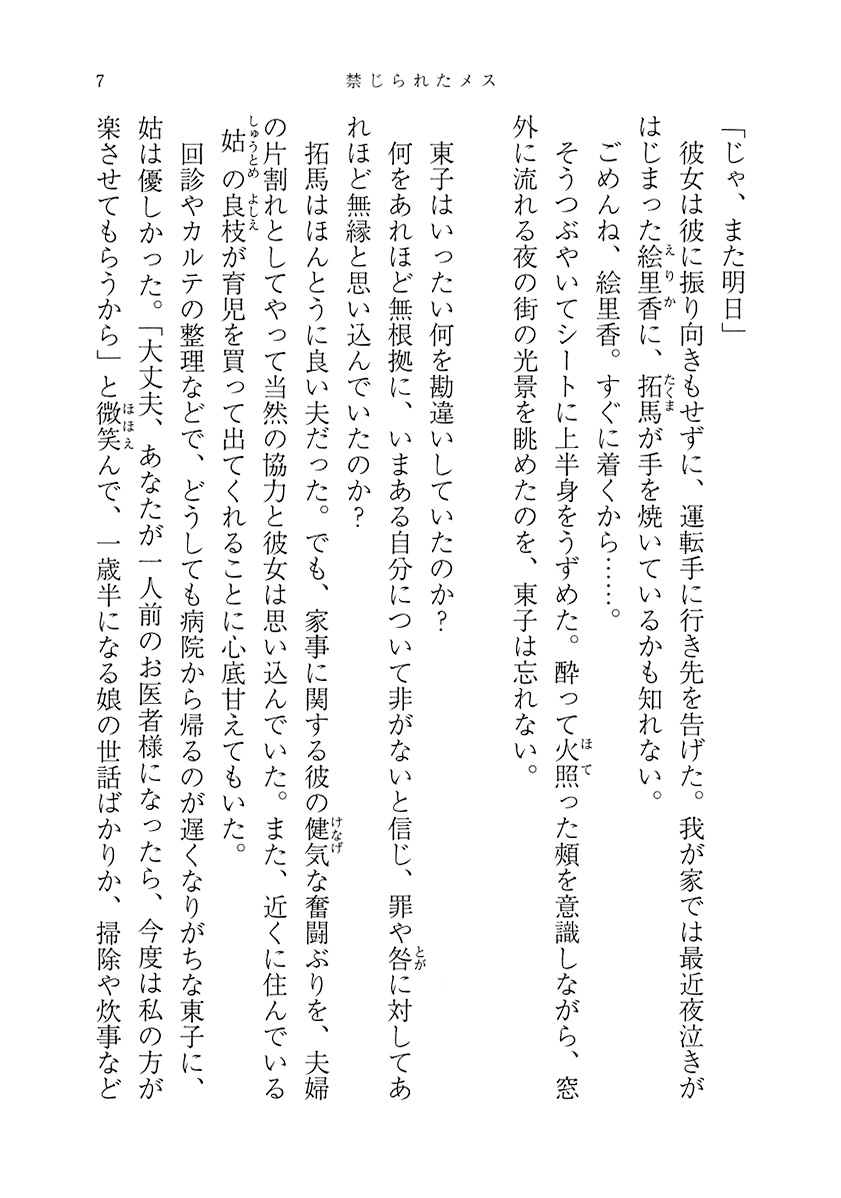 7
禁じられたメス
「じゃ、また明日」
彼女は彼に振り向きもせずに、運転手に行き先を告げた。我が家では最近夜泣きが
はじまった絵里香に、拓馬が手を焼いているかも知れない。
ごめんね、絵里香。すぐに着くから……。
そうつぶやいてシートに上半身をうずめた。酔って火照った頰を意識しながら、窓
外に流れる夜の街の光景を眺めたのを、東子は忘れない。
東子はいったい何を勘違いしていたのか？
何をあれほど無根拠に、いまある自分について非がないと信じ、罪や咎に対してあ
れほど無縁と思い込んでいたのか？
拓馬はほんとうに良い夫だった。でも、家事に関する彼の健気な奮闘ぶりを、夫婦
の片割れとしてやって当然の協力と彼女は思い込んでいた。また、近くに住んでいる
姑の良枝が育児を買って出てくれることに心底甘えてもいた。
回診やカルテの整理などで、どうしても病院から帰るのが遅くなりがちな東子に、
姑は優しかった。「大丈夫、あなたが一人前のお医者様になったら、今度は私の方が
楽させてもらうから」と微笑んで、一歳半になる娘の世話ばかりか、掃除や炊事など